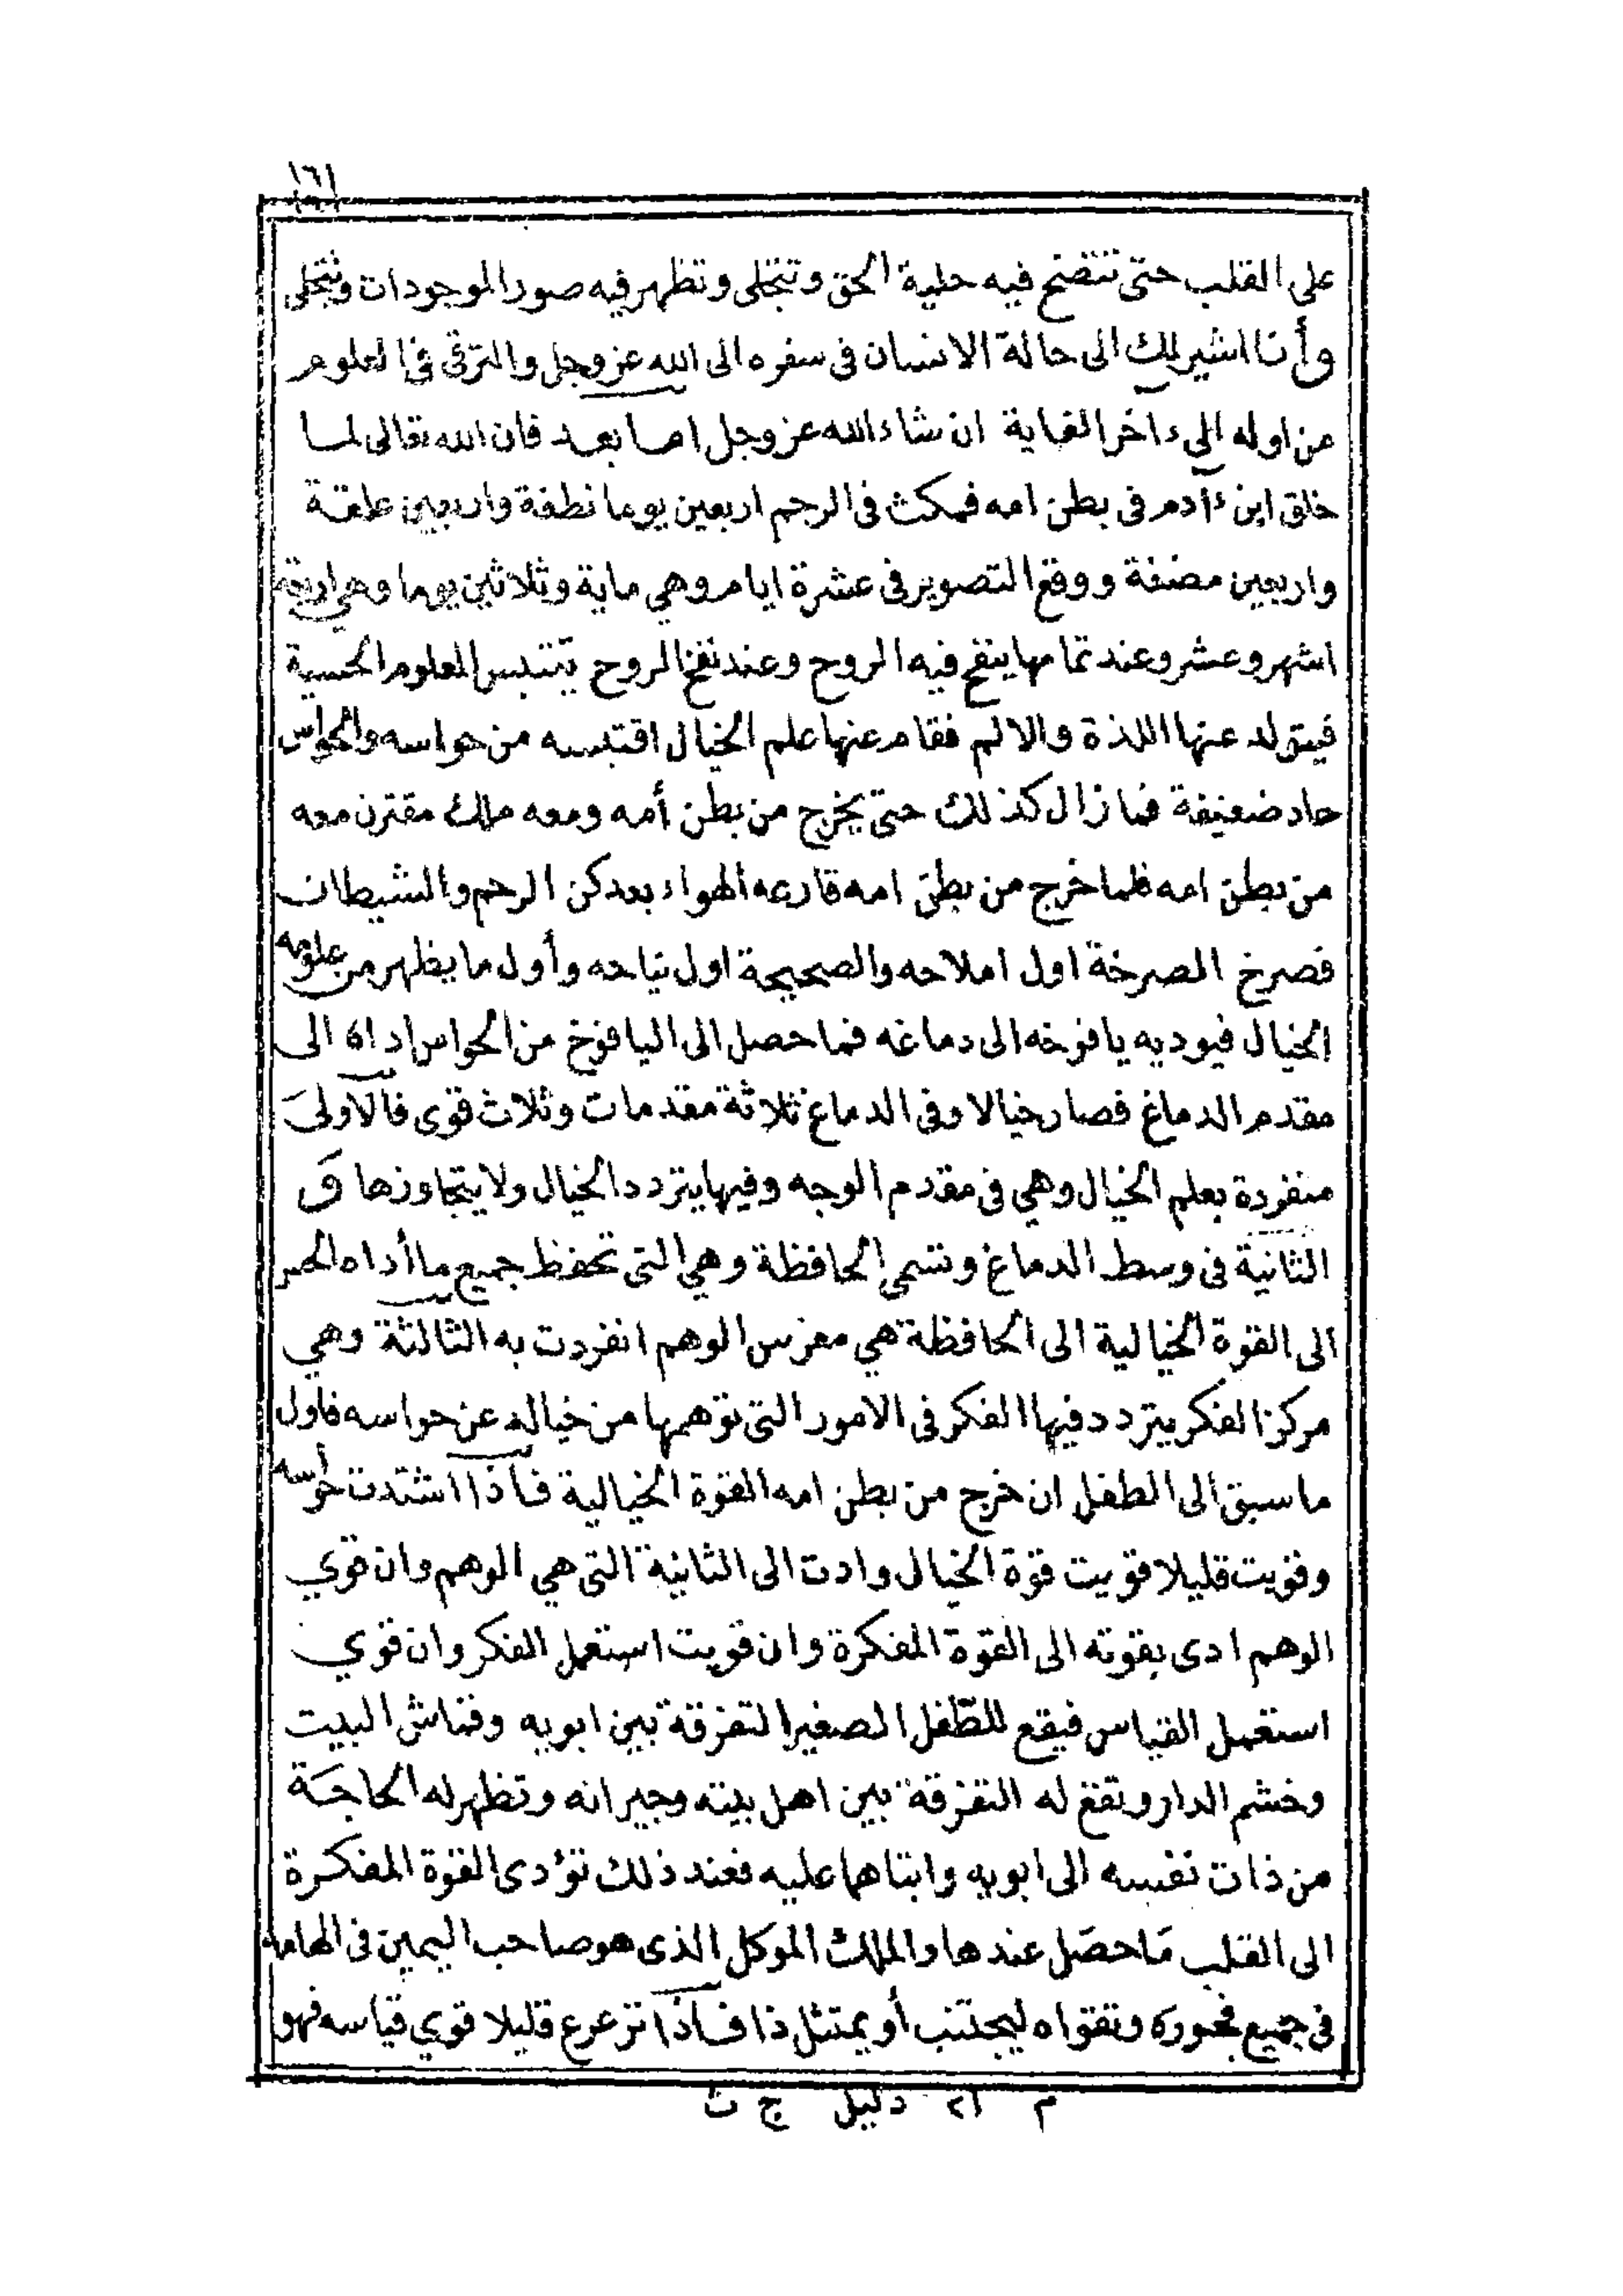 ١٦١
على القلب حتى تتضح فيه حلية الحق وتتجلى وتظهر فيه صور الموجودات وتتجلى
وأنا اشير لك الى حالة الانسان فى سفره الى الله عز وجل والترقى فى العلوم
من اوله الى ءاخر الغاية ان شاء الله عز وجل اما بعد فان الله تعالى لما
خلق ابن ءادم فى بطن امه فمكث فى الرحم اربعين يوما نطفة واربعين علقة
واربعين مضغة ووقع التصوير فى عشرة ايام وهي ماية وثلاثين يوما وهي اربعة
اشهر وعشر وعند تمامها ينفخ فيه الروح وعند نفخ الروح يقتبس العلوم الحسية
فيتولد عنها اللذة والالم فقام عنها علم الخيال اقتبسه من حواسه والحواس
حاد ضعيفة فما زال كذلك حتى يخرج من بطن أمه ومعه ملك مقترن معه
من بطن امه فلما خرج من بطن امه قارعه الهواء بعد كن الرحم والشيطان
فصرخ الصرخة اول املاحه والصحيحة اول نياحه وأول ما يظهر من علومه
الخيال فيوديه يافوخه الى دماغه فما حصل الى اليافوخ من الحواس اداه الى
مقدم الدماغ فصار خيالا وفى الدماغ ثلاثة مقدمات وثلاث قوى فالاولى
منفردة بعلم الخيال وهي فى مقدم الوجه وفيها يتردد الخيال ولا يتجاوزها وَ
الثانية فى وسط الدماغ وتسمى الحافظة وهي التى تحفظ جميع ما أداه الحس
الى القوة الخيالية الى الحافظة هي مغرس الوهم انفردت به الثالثة وهي
مركز الفكر يتردد فيها الفكر فى الامور التى توهمها من خياله عن حواسه فاول
ما سبق الى الطفل ان خرج من بطن امه القوة الخيالية فاذا اشتدت حواسه
وقويت قليلا قويت قوة الخيال وادت الى الثانية التى هي الوهم وان قوي
الوهم ادى بقوته الى القوة المفكرة وان قويت استعمل الفكر وان قوي
استعمل القياس فيقع للطفل الصغير التفرقة بين ابويه وقماش البيت
وخشم الدار وتقع له التفرقة بين اهل بيته وجيرانه وتظهر له الحاجة
من ذات نفسه الى ابويه وابتاهما عليه فعند ذلك تؤدى القوة المفكرة
الى القلب مَا حصَل عندها والملك الموكل الذى هو صاحب اليمين فى الهامه
فى جميع فجوره وتقواه ليجتنب أو يمتثل ذا فاذا ترعرع قليلا قوي قياسه فهو
م ٢١ دليل ج ث